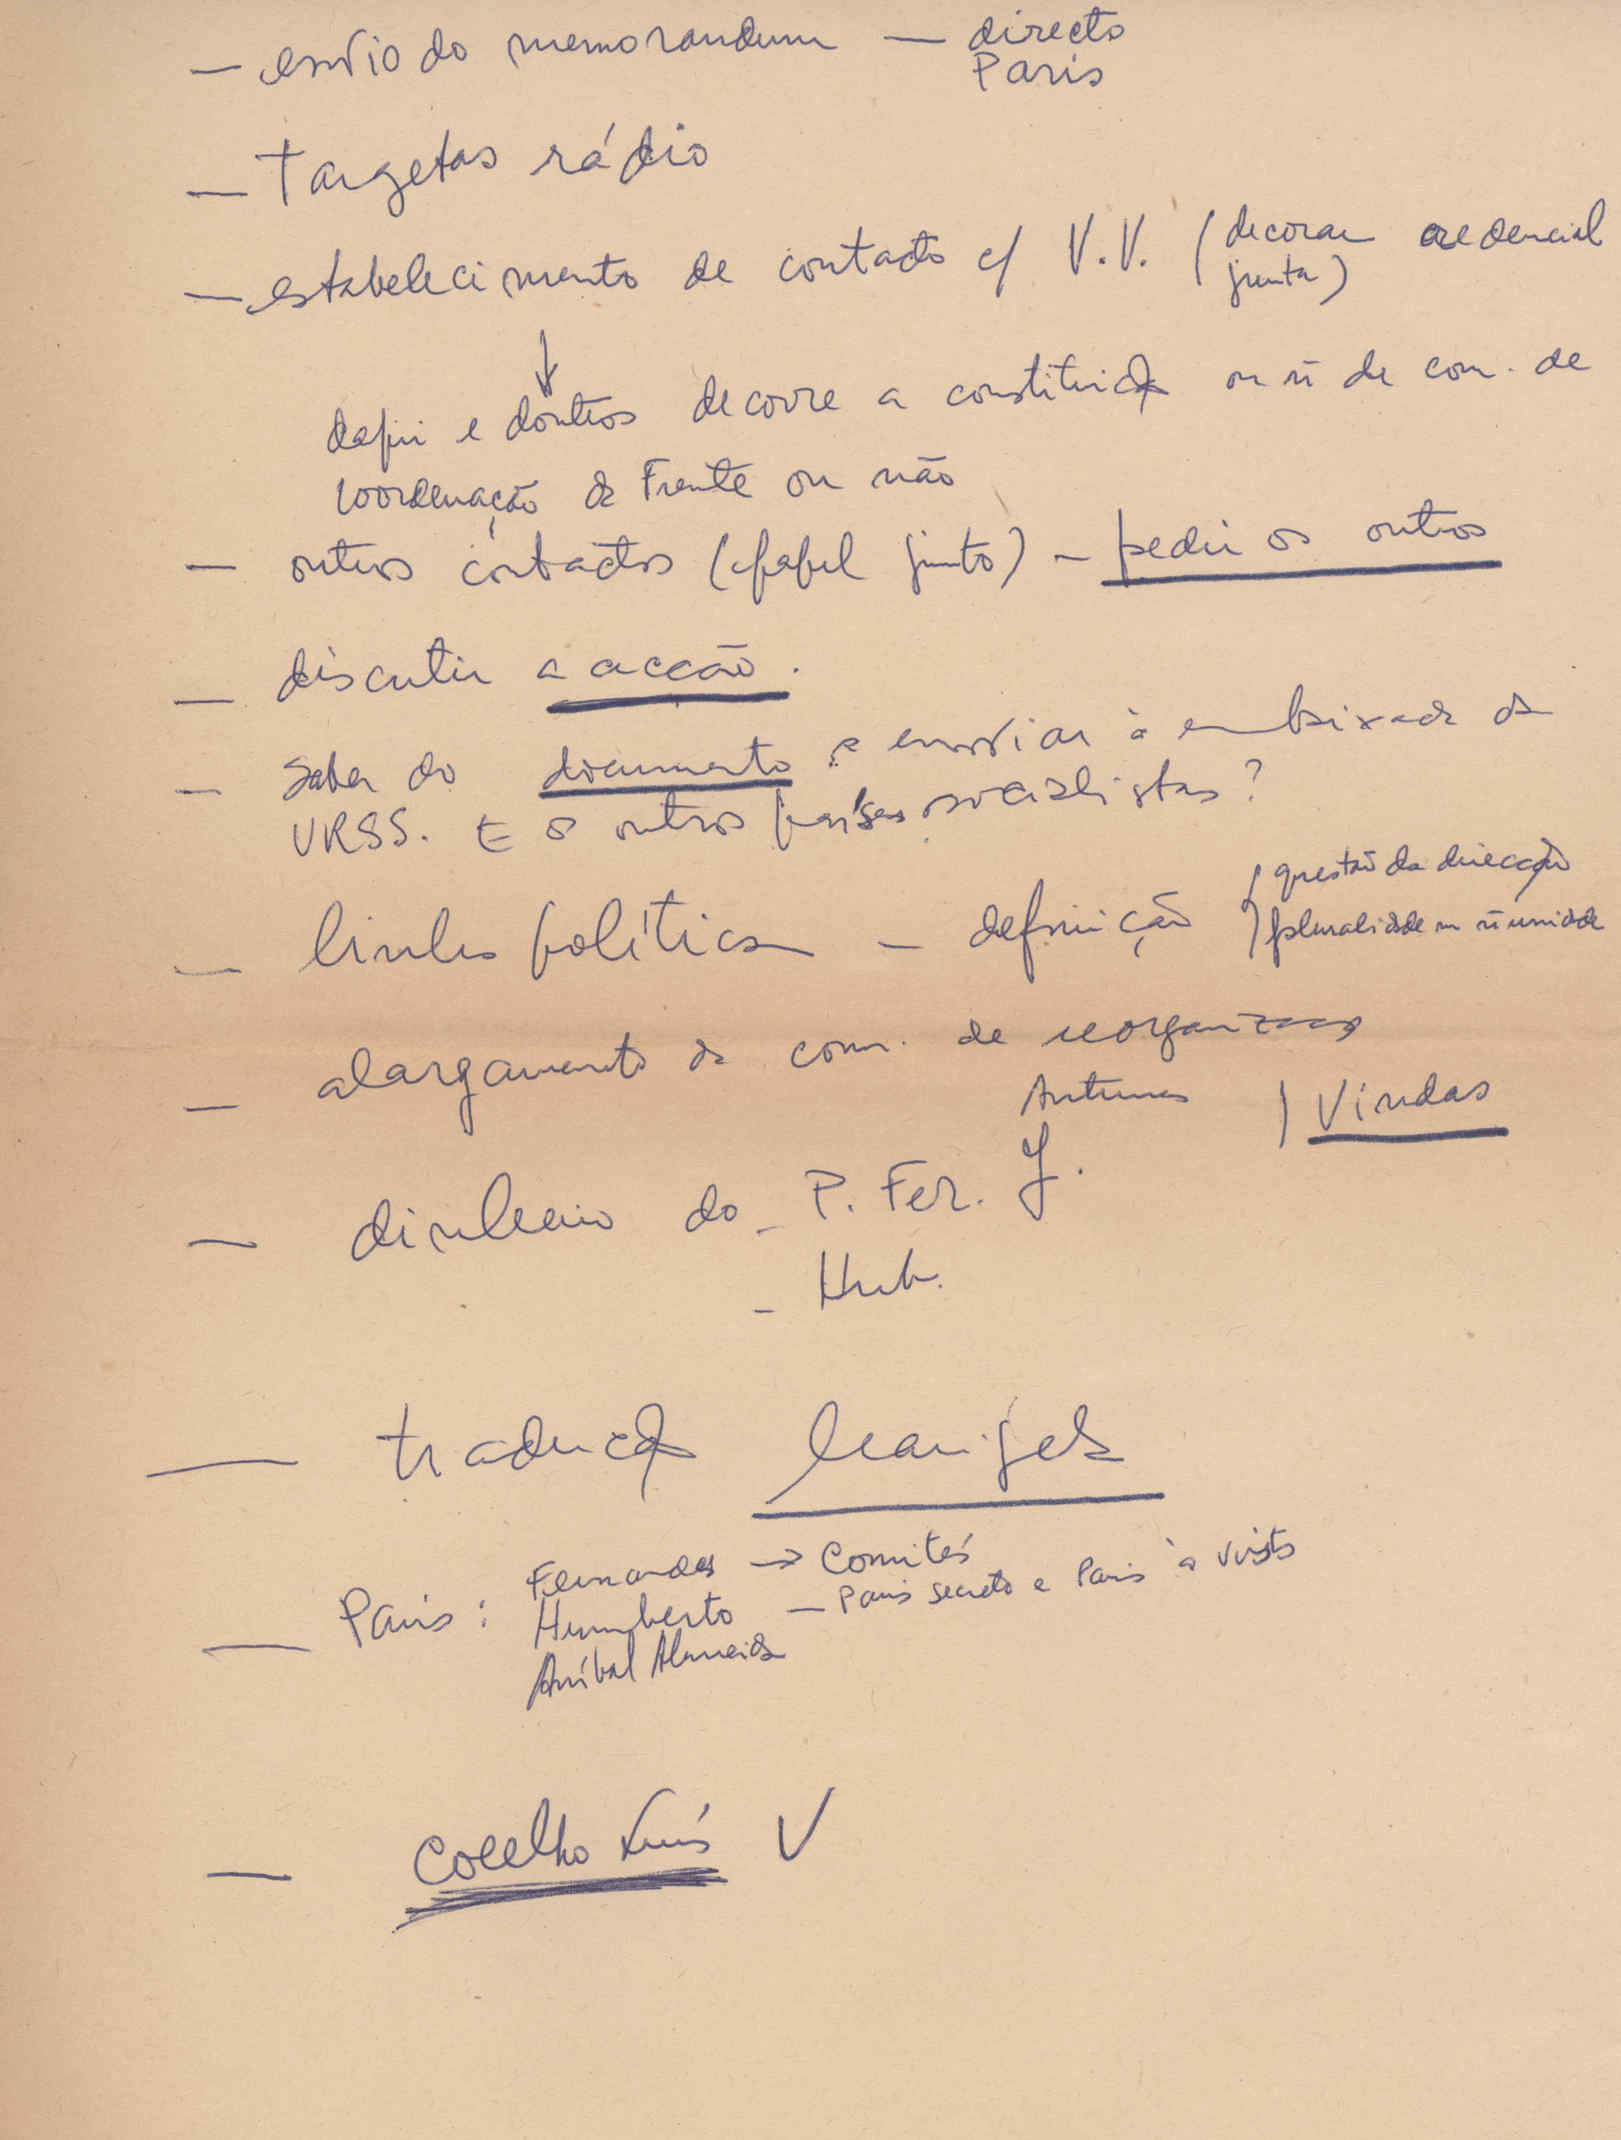 — envio do memorandum — directo
Paris
— Targetas rádio
— estabelecimento de contacto c/ V.V. (decorar credencial
junta)
↓
daqui e doutros decorre a constituição ou ñ da com. de
coordenação da Frente ou não
— outros contactos (papel junto) — pedir os outros
— discutir a acção.
— Saber do documento a enviar à embaixada da
URSS. E os outros países socialistas?
— linha política — definição questão da direcção
pluralidade ou ñ unidade
— alargamento da com. de reorganização
Antunes | Vindas
— dinheiro do - P. Fer. J.
- Hub.
— tradução
— Paris: Fernandes → Comités
Humberto — Paris secreto e Paris à vista
Aníbal Almeida
— Coelho Luís V